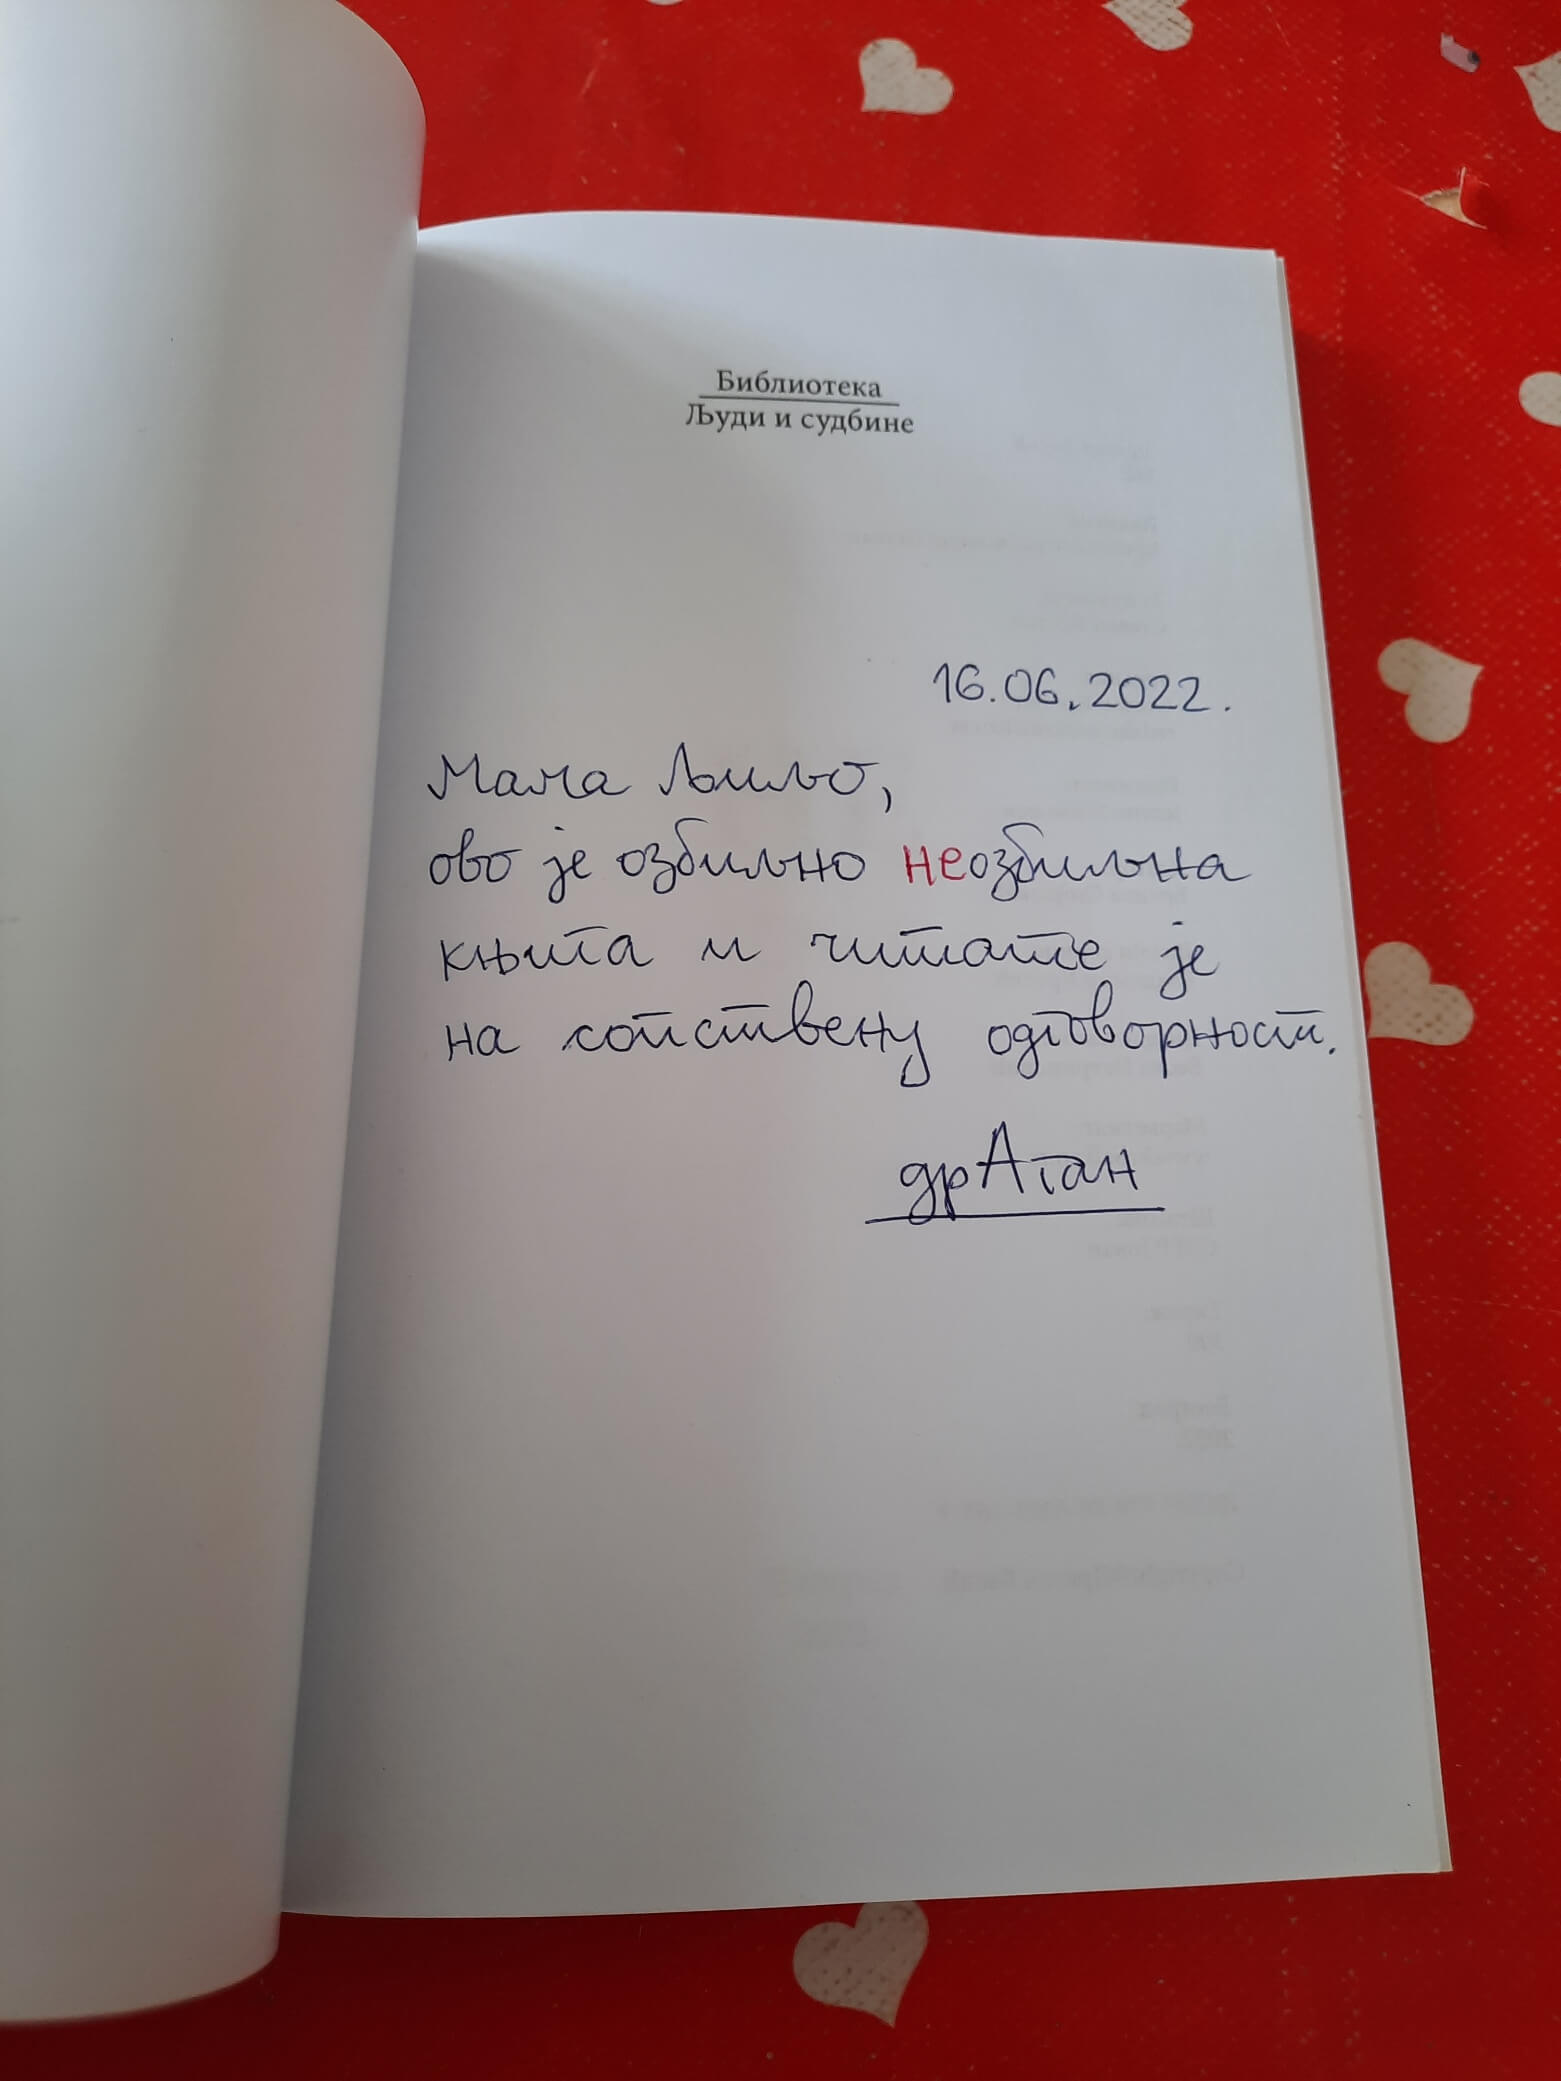 Библиотека
Људи и судбине
16.06.2022.
Мама Љиљо,
ово је озбиљно неозбиљна
књига и читате је
на сопствену одговорност.
др Аган